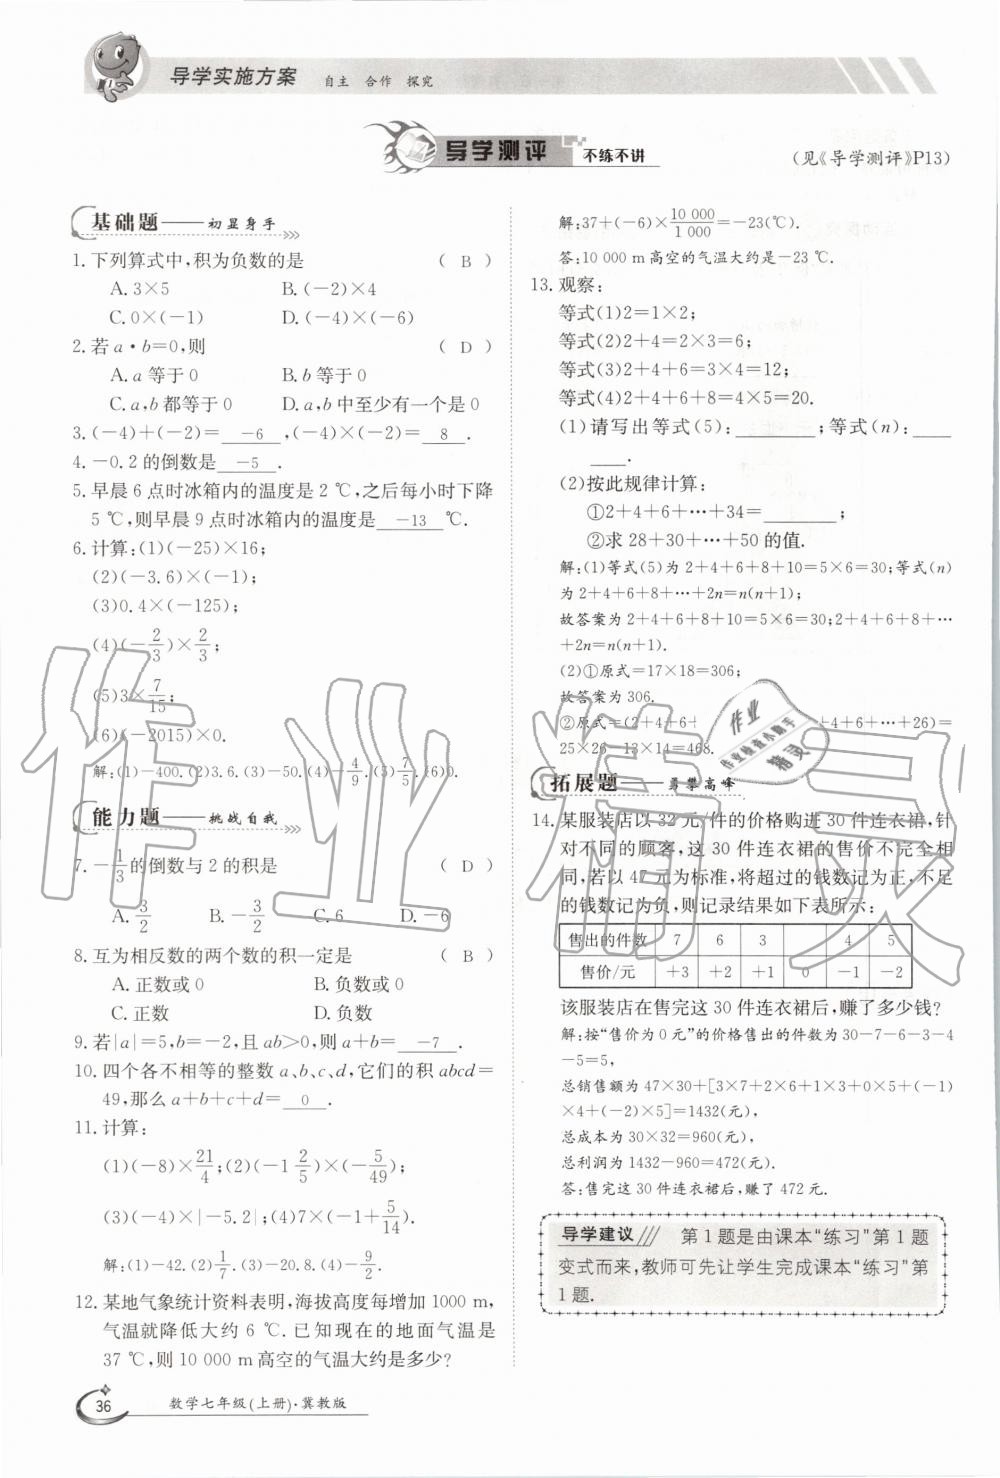 导学实施方案 自主 合作 探究
导学测评 不练不讲
(见《导学测评》P13)
基础题——初显身手
1.下列算式中,积为负数的是 ( B )
A.3×5 B.(-2)×4
C.0×(-1) D.(-4)×(-6)
2.若a·b=0,则 ( D )
A.a等于0 B.b等于0
C.a,b都等于0 D.a,b中至少有一个是0
3.(-4)+(-2)= -6 ,(-4)×(-2)= 8 .
4.-0.2的倒数是 -5 .
5.早晨6点时冰箱内的温度是2 ℃,之后每小时下降
5 ℃,则早晨9点时冰箱内的温度是 -13 ℃.
6.计算:(1)(-25)×16;
(2)(-3.6)×(-1);
(3)0.4×(-125);
(4)(-2/3)×2/3;
(5)3×7/15;
(6)(-2015)×0.
解:(1)-400.(2)3.6.(3)-50.(4)-4/9.(5)7/5.(6)0.
能力题——挑战自我
7.-1/3的倒数与2的积是 ( D )
A.3/2 B.-3/2 C.6 D.-6
8.互为相反数的两个数的积一定是 ( B )
A.正数或0 B.负数或0
C.正数 D.负数
9.若|a|=5,b=-2,且ab>0,则a+b= -7 .
10.四个各不相等的整数a、b、c、d,它们的积abcd=
49,那么a+b+c+d= 0 .
11.计算:
(1)(-8)×21/4;(2)(-1 2/5)×(-5/49);
(3)(-4)×|-5.2|;(4)7×(-1+5/14).
解:(1)-42.(2)1/7.(3)-20.8.(4)-9/2.
12.某地气象统计资料表明,海拔高度每增加1000 m,
气温就降低大约6 ℃.已知现在的地面气温是
37 ℃,则10 000 m高空的气温大约是多少?
解:37+(-6)×10 000/1 000=-23(℃).
答:10 000 m高空的气温大约是-23 ℃.
13.观察:
等式(1)2=1×2;
等式(2)2+4=2×3=6;
等式(3)2+4+6=3×4=12;
等式(4)2+4+6+8=4×5=20.
(1)请写出等式(5):________;等式(n):____
____.
(2)按此规律计算:
①2+4+6+…+34=________;
②求28+30+…+50的值.
解:(1)等式(5)为2+4+6+8+10=5×6=30;等式(n)
为2+4+6+8+…+2n=n(n+1);
故答案为2+4+6+8+10=5×6=30;2+4+6+8+…
+2n=n(n+1).
(2)①原式=17×18=306;
故答案为306.
②原式=(2+4+6+ +4+6+…+26)=
25×26-13×14=468.
拓展题——勇攀高峰
14.某服装店以32元/件的价格购进30件连衣裙,针
对不同的顾客,这30件连衣裙的售价不完全相
同,若以47元为标准,将超过的钱数记为正,不足
的钱数记为负,则记录结果如下表所示:
售出的件数 7 6 3 4 5
售价/元 +3 +2 +1 0 -1 -2
该服装店在售完这30件连衣裙后,赚了多少钱?
解:按“售价为0元”的价格售出的件数为30-7-6-3-4
-5=5,
总销售额为47×30+[3×7+2×6+1×3+0×5+(-1)
×4+(-2)×5]=1432(元),
总成本为30×32=960(元),
总利润为1432-960=472(元).
答:售完这30件连衣裙后,赚了472元.
导学建议 第1题是由课本“练习”第1题
变式而来,教师可先让学生完成课本“练习”第
1题.
36 数学七年级(上册)·冀教版
作业精灵
作业
作业检查小助手
精灵